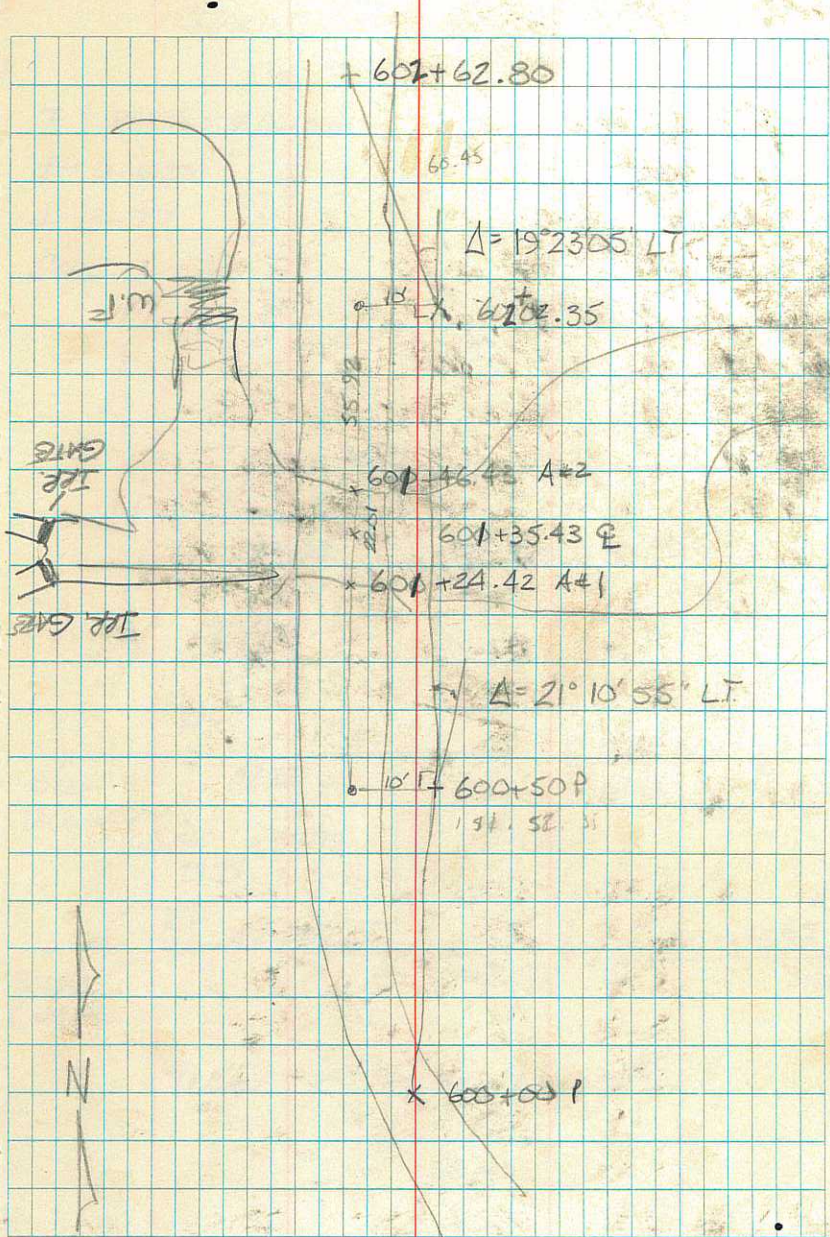 602+62.80
60.45
Δ=19°23'05" LT
W.F
10'
602+02.35
55.92
IRR.
GATE
601+46.43 A#2
22.01
601+35.43 ℄
601+24.42 A#1
IRR. GATE
Δ=21°10'55" LT
10'
600+50 P
N
600+00 P